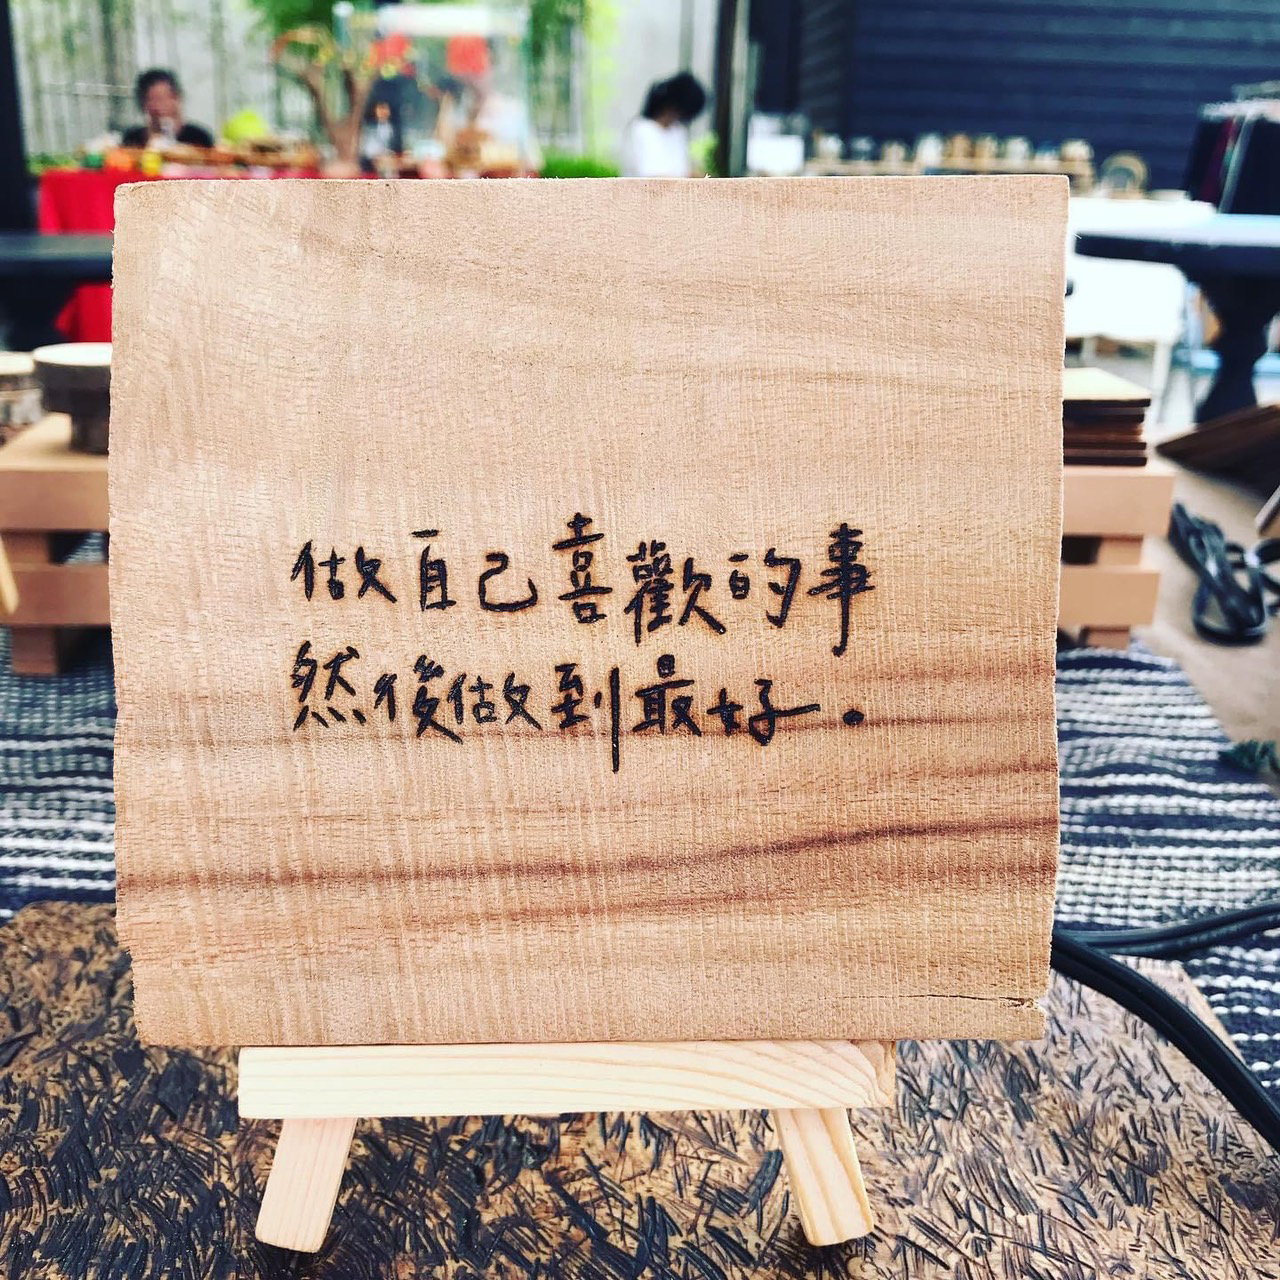 做自己喜歡的事
然後做到最好.